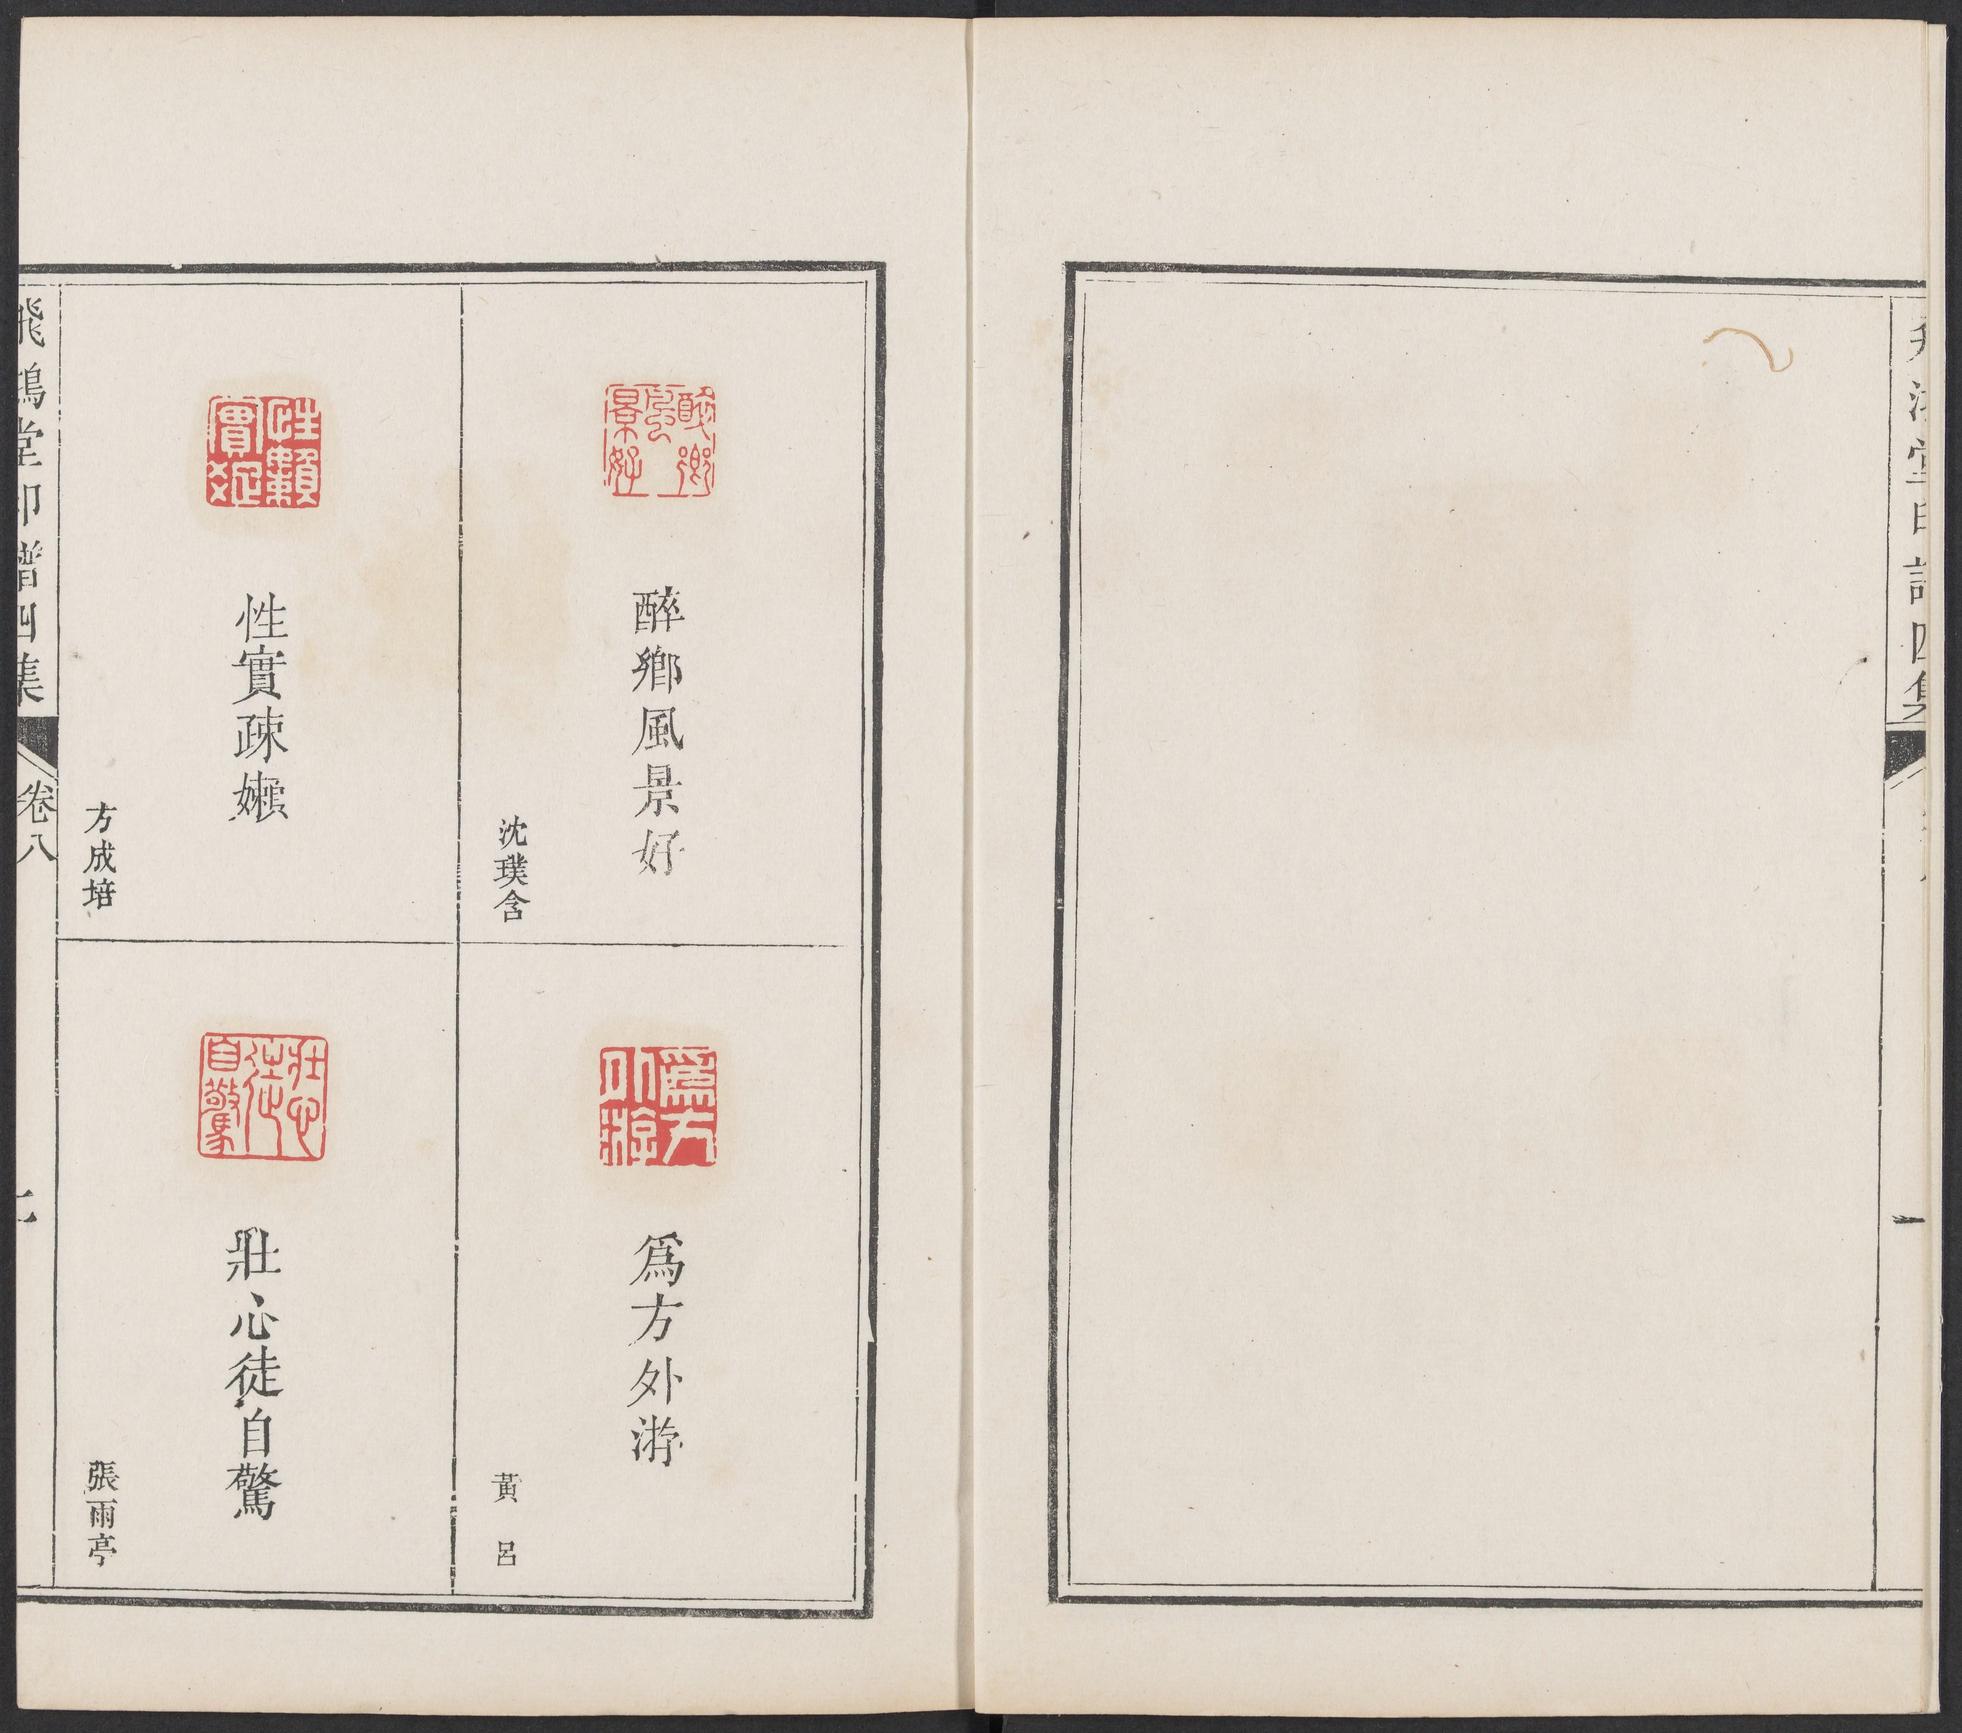 飛鴻堂印譜四集
醉鄉風景好
沈璞含
爲方外游
黃呂
性實疎嬾
方成培
壯心徒自驚
張雨亭
飛鴻堂印譜四集
卷八